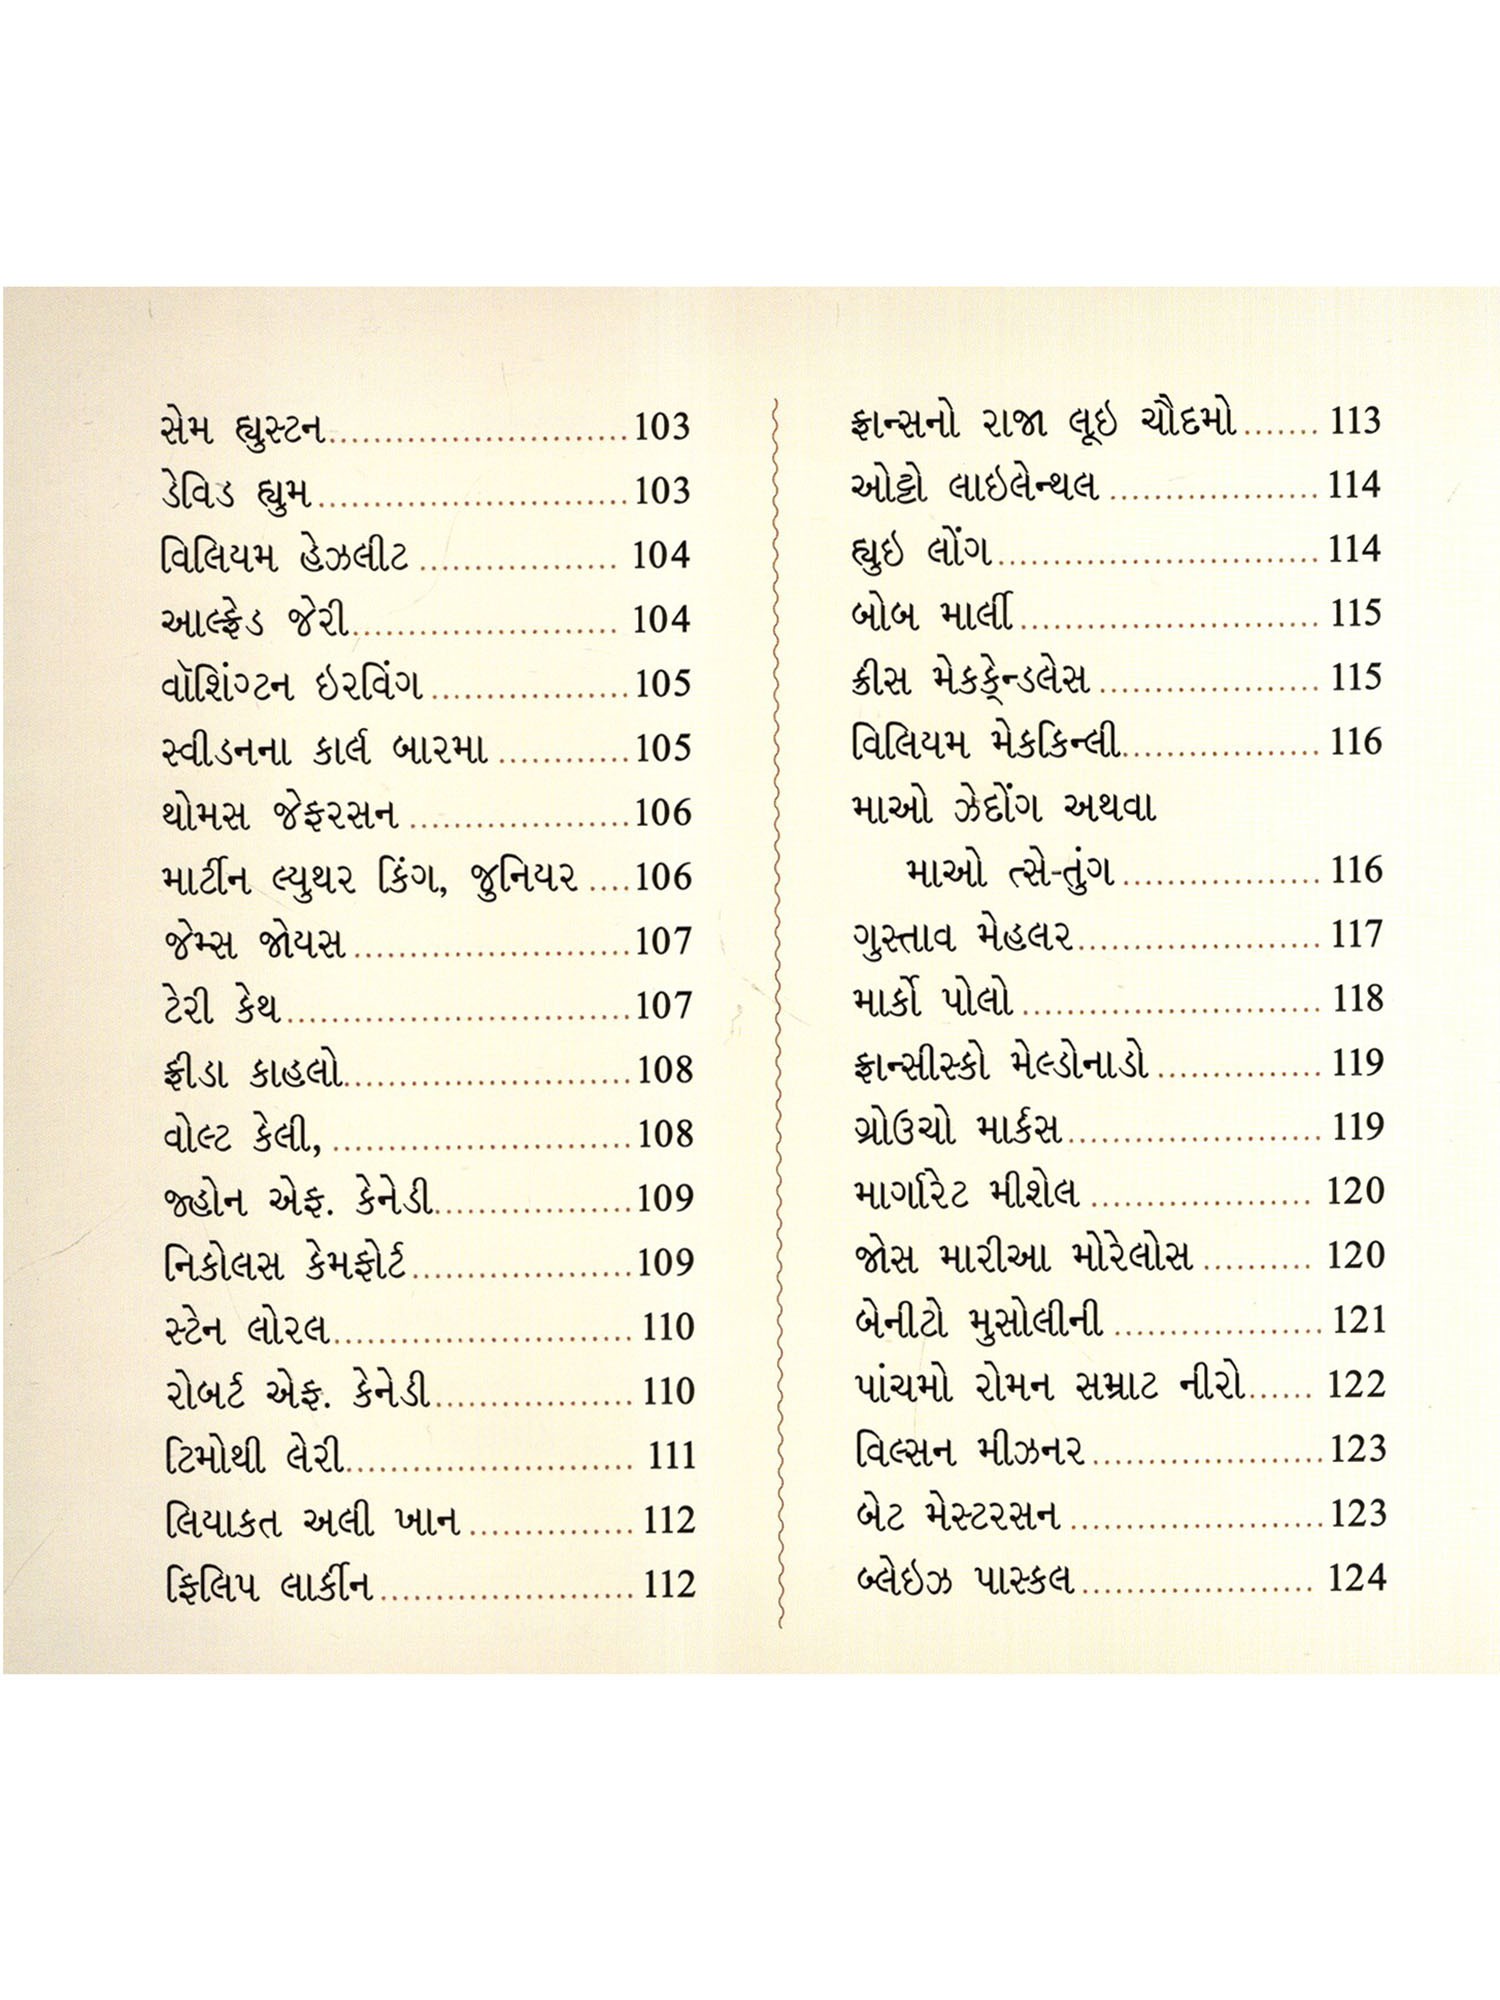 સેમ હ્યુસ્ટન............................103
ડેવિડ હ્યુમ.............................103
વિલિયમ હેઝલીટ .................. 104
આલ્ફ્રેડ જેરી......................... 104
વૉશિંગ્ટન ઇરવિંગ ...................105
સ્વીડનના કાર્લ બારમા ............105
થોમસ જેફરસન ....................106
માર્ટીન લ્યુથર કિંગ, જુનિયર ....106
જેમ્સ જોયસ..........................107
ટેરી કેથ................................107
ફ્રીડા કાહલો...........................108
વોલ્ટ કેલી, ...........................108
જ્હોન એફ. કેનેડી..................109
નિકોલસ કેમફોર્ટ....................109
સ્ટેન લોરલ............................ 110
રોબર્ટ એફ. કેનેડી................... 110
ટિમોથી લેરી........................... 111
લિયાકત અલી ખાન ............... 112
ફિલિપ લાર્કીન........................ 112
ફ્રાન્સનો રાજા લૂઇ ચૌદમો....... 113
ઓટ્ટો લાઇલેન્થલ ................... 114
હ્યુઇ લોંગ.............................. 114
બોબ માર્લી............................ 115
ક્રીસ મેકકેન્ડલેસ .................... 115
વિલિયમ મેકકિન્લી.................. 116
માઓ ઝેદોંગ અથવા
માઓ ત્સે-તુંગ.................. 116
ગુસ્તાવ મેહલર....................... 117
માર્કો પોલો ........................... 118
ફ્રાન્સીસ્કો મેલ્ડોનાડો ............... 119
ગ્રોઉચો માર્ક્સ........................ 119
માર્ગારેટ મીશેલ .................... 120
જોસ મારીઆ મોરેલોસ .......... 120
બેનીટો મુસોલીની ................... 121
પાંચમો રોમન સમ્રાટ નીરો...... 122
વિલ્સન મીઝનર .....................123
બેટ મેસ્ટરસન .......................123
બ્લેઇઝ પાસ્કલ..................... 124